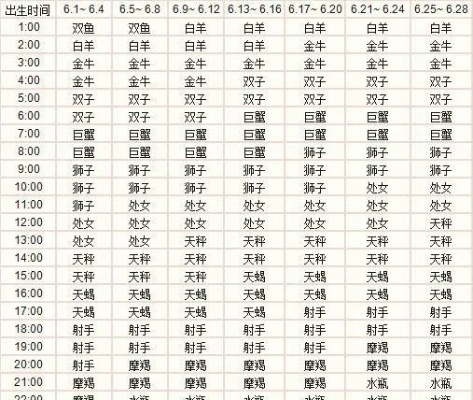 出生时间 6.1~ 6.4 6.5~ 6.8 6.9~ 6.12 6.13~ 6.16 6.17~ 6.20 6.21~ 6.24 6.25~ 6.28
1:00 双鱼 双鱼 白羊 白羊 白羊 白羊 白羊
2:00 白羊 白羊 白羊 白羊 金牛 金牛 金牛
3:00 金牛 金牛 金牛 金牛 金牛 金牛 金牛
4:00 金牛 金牛 金牛 双子 双子 双子 双子
5:00 双子 双子 双子 双子 双子 双子 双子
6:00 双子 双子 双子 巨蟹 巨蟹 巨蟹 巨蟹
7:00 巨蟹 巨蟹 巨蟹 巨蟹 巨蟹 巨蟹 巨蟹
8:00 巨蟹 巨蟹 巨蟹 巨蟹 狮子 狮子 狮子
9:00 狮子 狮子 狮子 狮子 狮子 狮子 狮子
10:00 狮子 狮子 狮子 狮子 狮子 处女 处女
11:00 狮子 处女 处女 处女 处女 处女 处女
12:00 处女 处女 处女 处女 处女 处女 天秤
13:00 处女 处女 天秤 天秤 天秤 天秤 天秤
14:00 天秤 天秤 天秤 天秤 天秤 天秤 天秤
15:00 天秤 天秤 天秤 天蝎 天蝎 天蝎 天蝎
16:00 天蝎 天蝎 天蝎 天蝎 天蝎 天蝎 天蝎
17:00 天蝎 天蝎 天蝎 天蝎 射手 射手 射手
18:00 射手 射手 射手 射手 射手 射手 射手
19:00 射手 射手 射手 射手 射手 摩羯 摩羯
20:00 射手 摩羯 摩羯 摩羯 摩羯 摩羯 摩羯
21:00 摩羯 摩羯 摩羯 摩羯 摩羯 水瓶 水瓶
22:00 摩羯 水瓶 水瓶 水瓶 水瓶 水瓶 水瓶